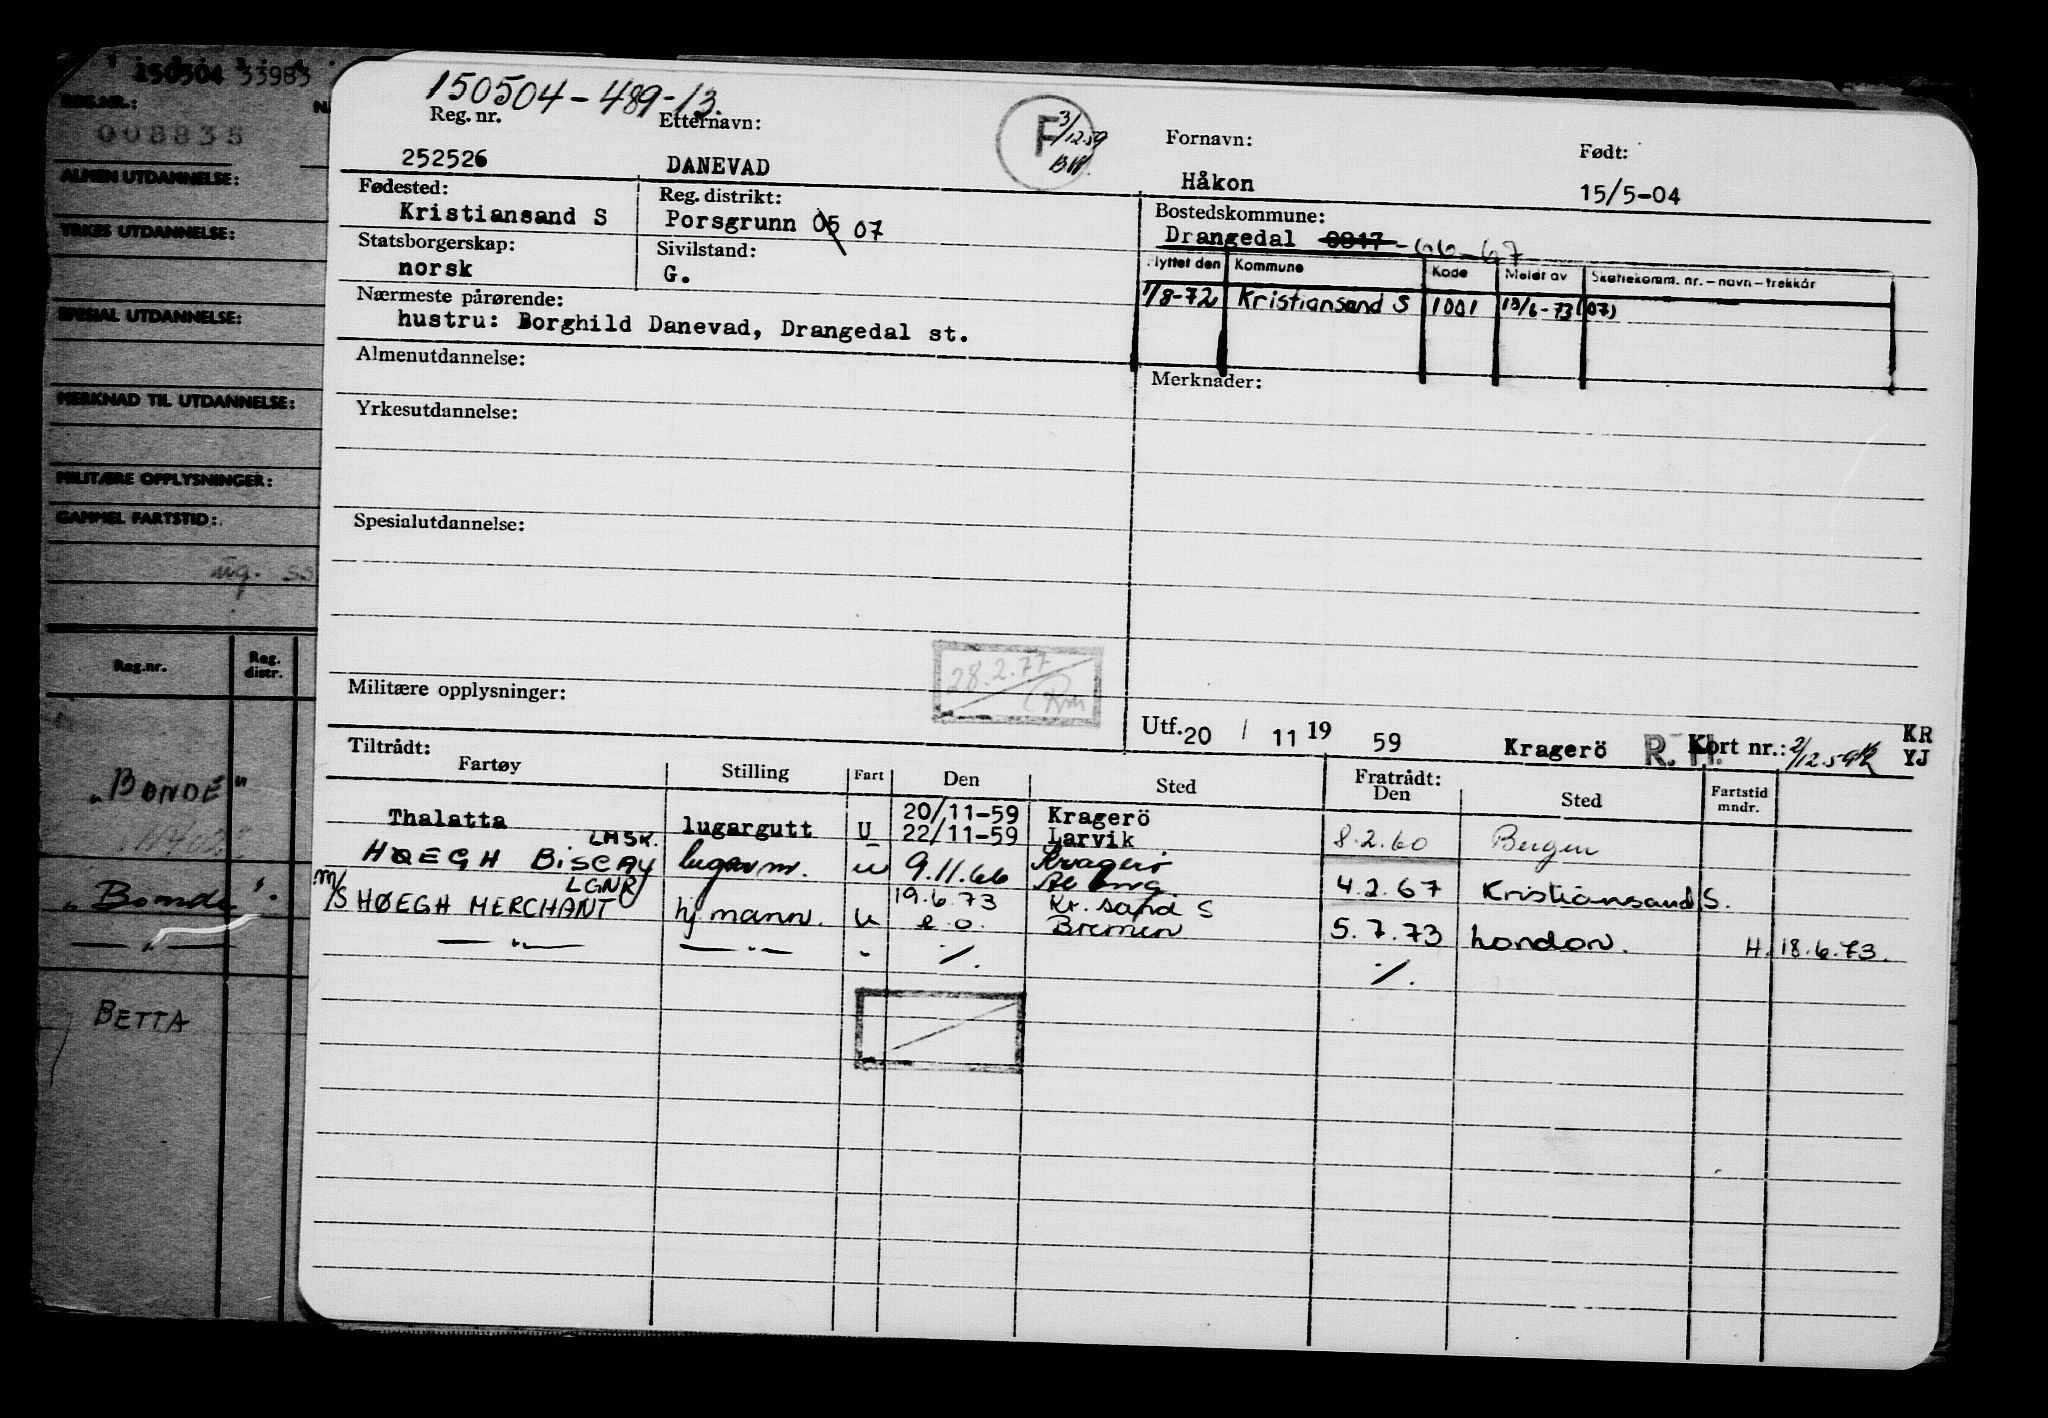 150504 33983
REG.NR.:
008835
ALMEN UTDANNELSE:
YRKES UTDANNELSE:
SPESIAL UTDANNELSE:
MERKNAD TIL UTDANNELSE:
MILITÆRE OPPLYSNINGER:
GAMMEL FARTSTID:
Reg.nr. Reg. distr.
"BONDE"
"Bonde".
— " —
BETTA
150504-489-13.
Reg. nr. Etternavn: Fornavn: Født:
252526 DANEVAD Håkon 15/5-04
F 3/12.59
Fødested: Reg. distrikt: Bostedskommune:
Kristiansand S Porsgrunn 05 07 Drangedal 0817 -66-67
Statsborgerskap: Sivilstand:
norsk G.
Flyttet den Kommune Kode Meldt av Skattekomm. nr. – navn – trekkår
1/8-72 Kristiansand S 1001 13/6-73 (07)
Nærmeste pårørende:
hustru: Borghild Danevad, Drangedal st.
Almenutdannelse: Merknader:
Yrkesutdannelse:
Spesialutdannelse:
28.2.77
Militære opplysninger:
Utf. 20 / 11 19 59 Kragerö R.H. Kort nr.: 2/12.59 KR YJ
Tiltrådt: Fratrådt:
Fartøy Stilling Fart Den Sted Den Sted Fartstid mndr.
Thalatta lugargutt U 20/11-59 Kragerö
22/11-59 Larvik 8.2.60 Bergen
LMSK.
HØEGH BISCAY lugarm. u 9.11.66 Kragerø 4.2.67 Kristiansand S.
LGNR
m/S HØEGH MERCHANT hj mann. u 19.6.73 Kr. sand S
e.o. Bremen 5.7.73 London. H. 18.6.73.
— " — — " — - ⁒ ⁒